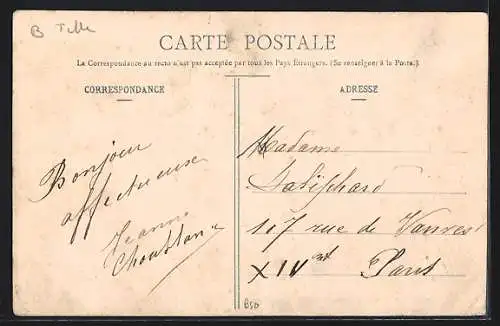 B
CARTE POSTALE
La Correspondance au recto n'est pas acceptée par tous les Pays Étrangers. (Se renseigner à la Poste.)
CORRESPONDANCE
ADRESSE
Bonjour
affectueux
Jeanne
Madame
107 rue de Vanves
XIVe Paris
B50